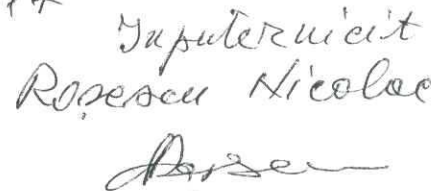 Împuternicit
Roșescu Nicolae